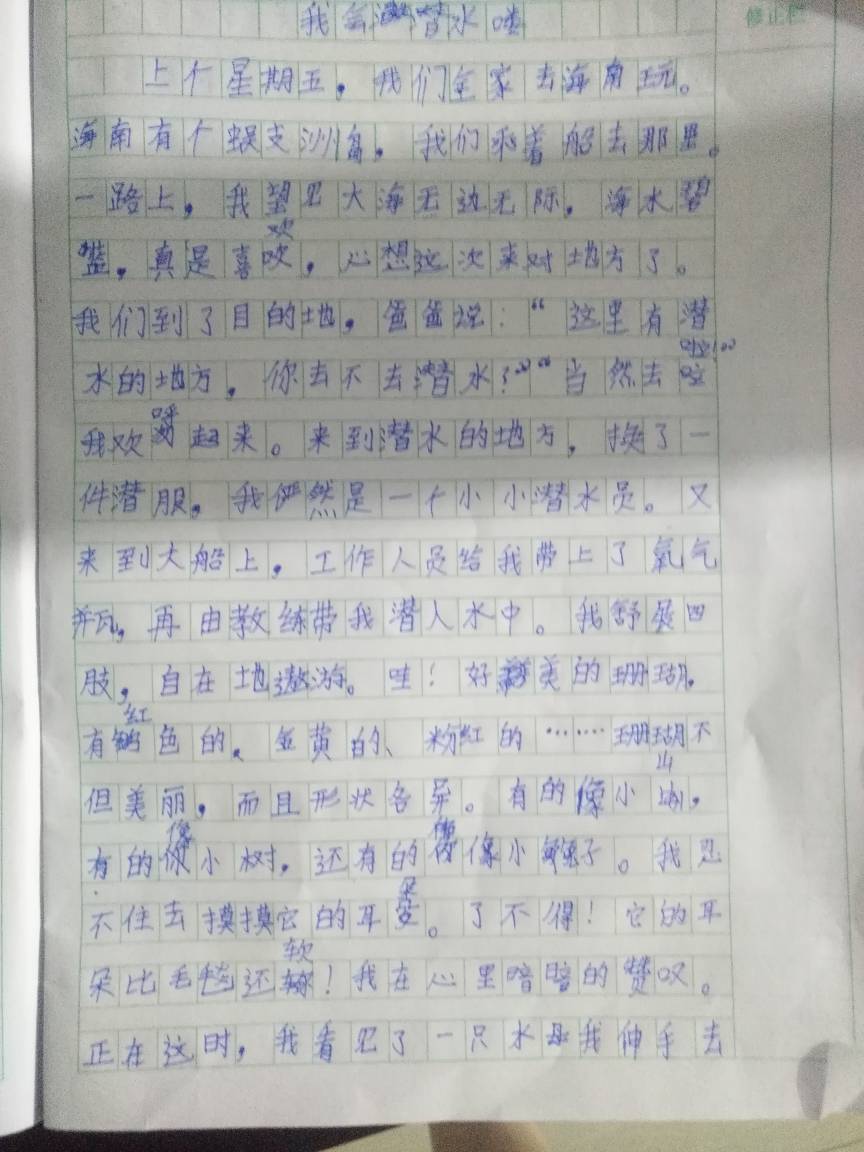 我会潜水喽
修正栏
上个星期五，我们全家去海南玩。
海南有个蜈支洲岛，我们乘着船去那里。
一路上，我望见大海无边无际，海水碧
蓝，真是喜欢，心想这次来对地方了。
我们到了目的地，爸爸说：“这里有潜
水的地方，你去不去潜水？”“当然去啦！”
我欢呼起来。来到潜水的地方，换了一
件潜服，我俨然是一个小小潜水员。又
来到大船上，工作人员给我带上了氧气
瓶，再由教练带我潜入水中。我舒展四
肢，自在地遨游。哇！好美的珊瑚，
有红色的、金黄的、粉红的……珊瑚不
但美丽，而且形状各异。有的像小山，
有的像小树，还有的像小兔子。我忍
不住去摸摸它的耳朵。了不得！它的耳
朵比毛毯还软！我在心里暗暗的赞叹。
正在这时，我看见了一只水母我伸手去